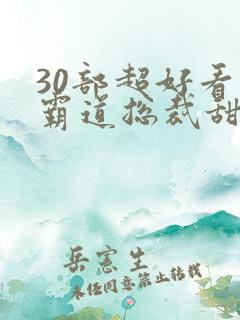 30部超好看
霸道总裁甜
岳宪生
未经同意禁止转载